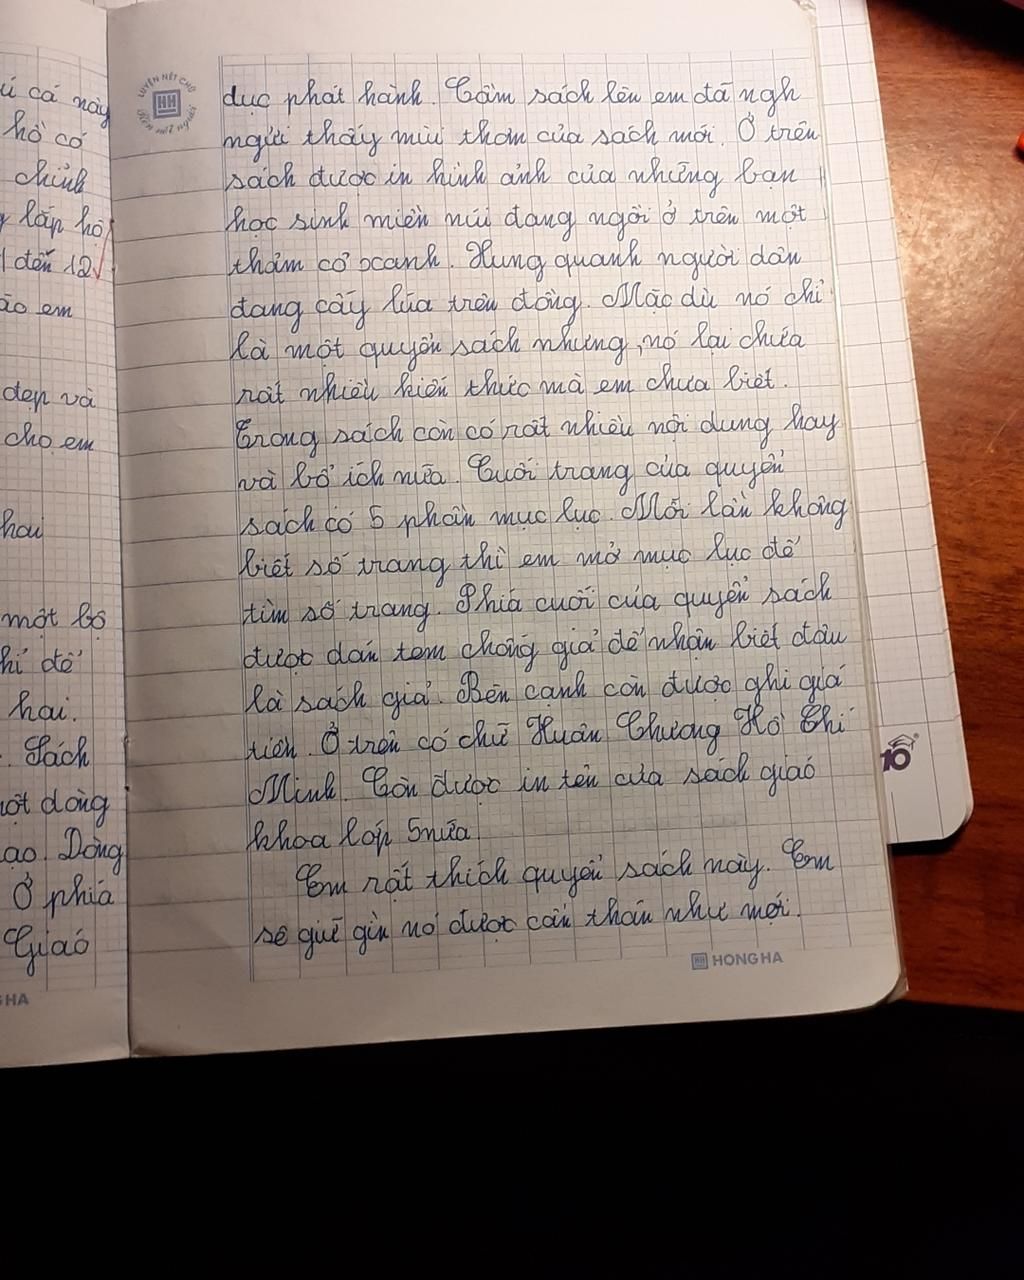 ú cá này
hồ có
chỉnh
lắp hộ
đến 12
ão em
đẹp và
cho em
hai
một bộ
hỉ để
hai.
. Sách
một dòng
ạo. Dòng
Ở phía
Giáo
GHA
LUYỆN NÉT CHỮ
Rèn nết người
HH
dục phát hành. Cầm sách lên em đã ngh
ngửi thấy mùi thơm của sách mới. Ở trên
sách được in hình ảnh của những bạn
học sinh miền núi đang ngồi ở trên một
thảm cỏ xanh. Xung quanh người dân
đang cấy lúa trên đồng. Mặc dù nó chỉ
là một quyển sách nhưng, nó lại chứa
rất nhiều kiến thức mà em chưa biết.
Trong sách còn có rất nhiều nội dung hay
và bổ ích nữa. Cuối trang của quyển
sách có 5 phần mục lục. Mỗi lần không
biết số trang thì em mở mục lục để
tìm số trang. Phía cuối của quyển sách
được dán tem chống giả để nhận biết đâu
là sách giả. Bên cạnh còn được ghi giá
tiền. Ở trên có chữ Huân Chương Hồ Chí
Minh. Còn được in tên của sách giáo
khoa lớp 5 nữa.
Em rất thích quyển sách này. Em
sẽ giữ gìn nó được cẩn thẩn như mới.
HH HONG HA
10